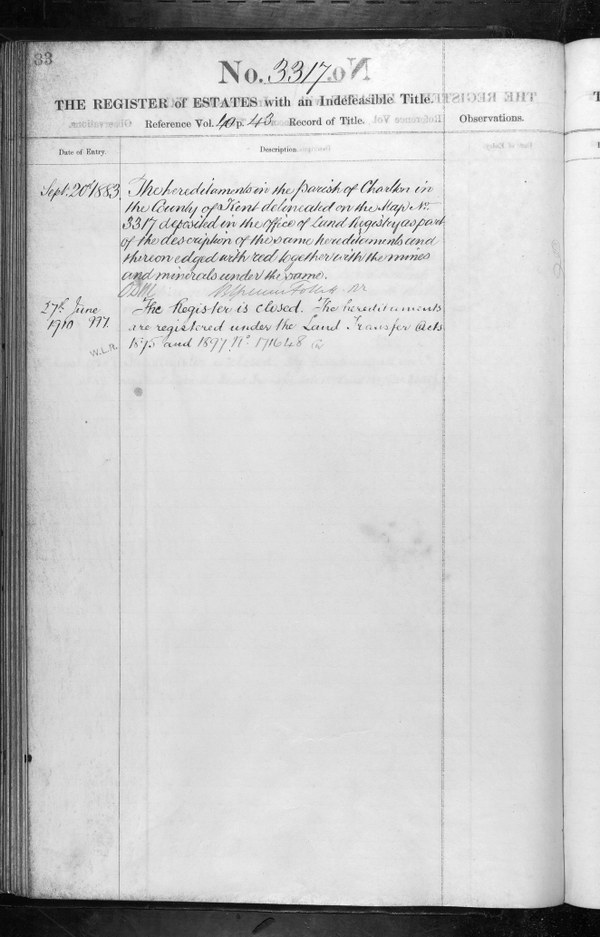 33
No. 3317.
THE REGISTER of ESTATES with an Indefeasible Title.
Reference Vol. 10 p. 43 Record of Title.
Observations.
Date of Entry.
Description.
Sept. 20th 1883
The hereditaments in the parish of Charlton in
the County of Kent delineated on the Map No.
3317 deposited in the office of Land Registry as part
of the description of the same hereditaments and
thereon edged with red together with the mines
and minerals under the same.
27th June
1910
The Register is closed. The hereditaments
are registered under the Land Transfer Acts
W.L.R.
1875 and 1897 No. 171648